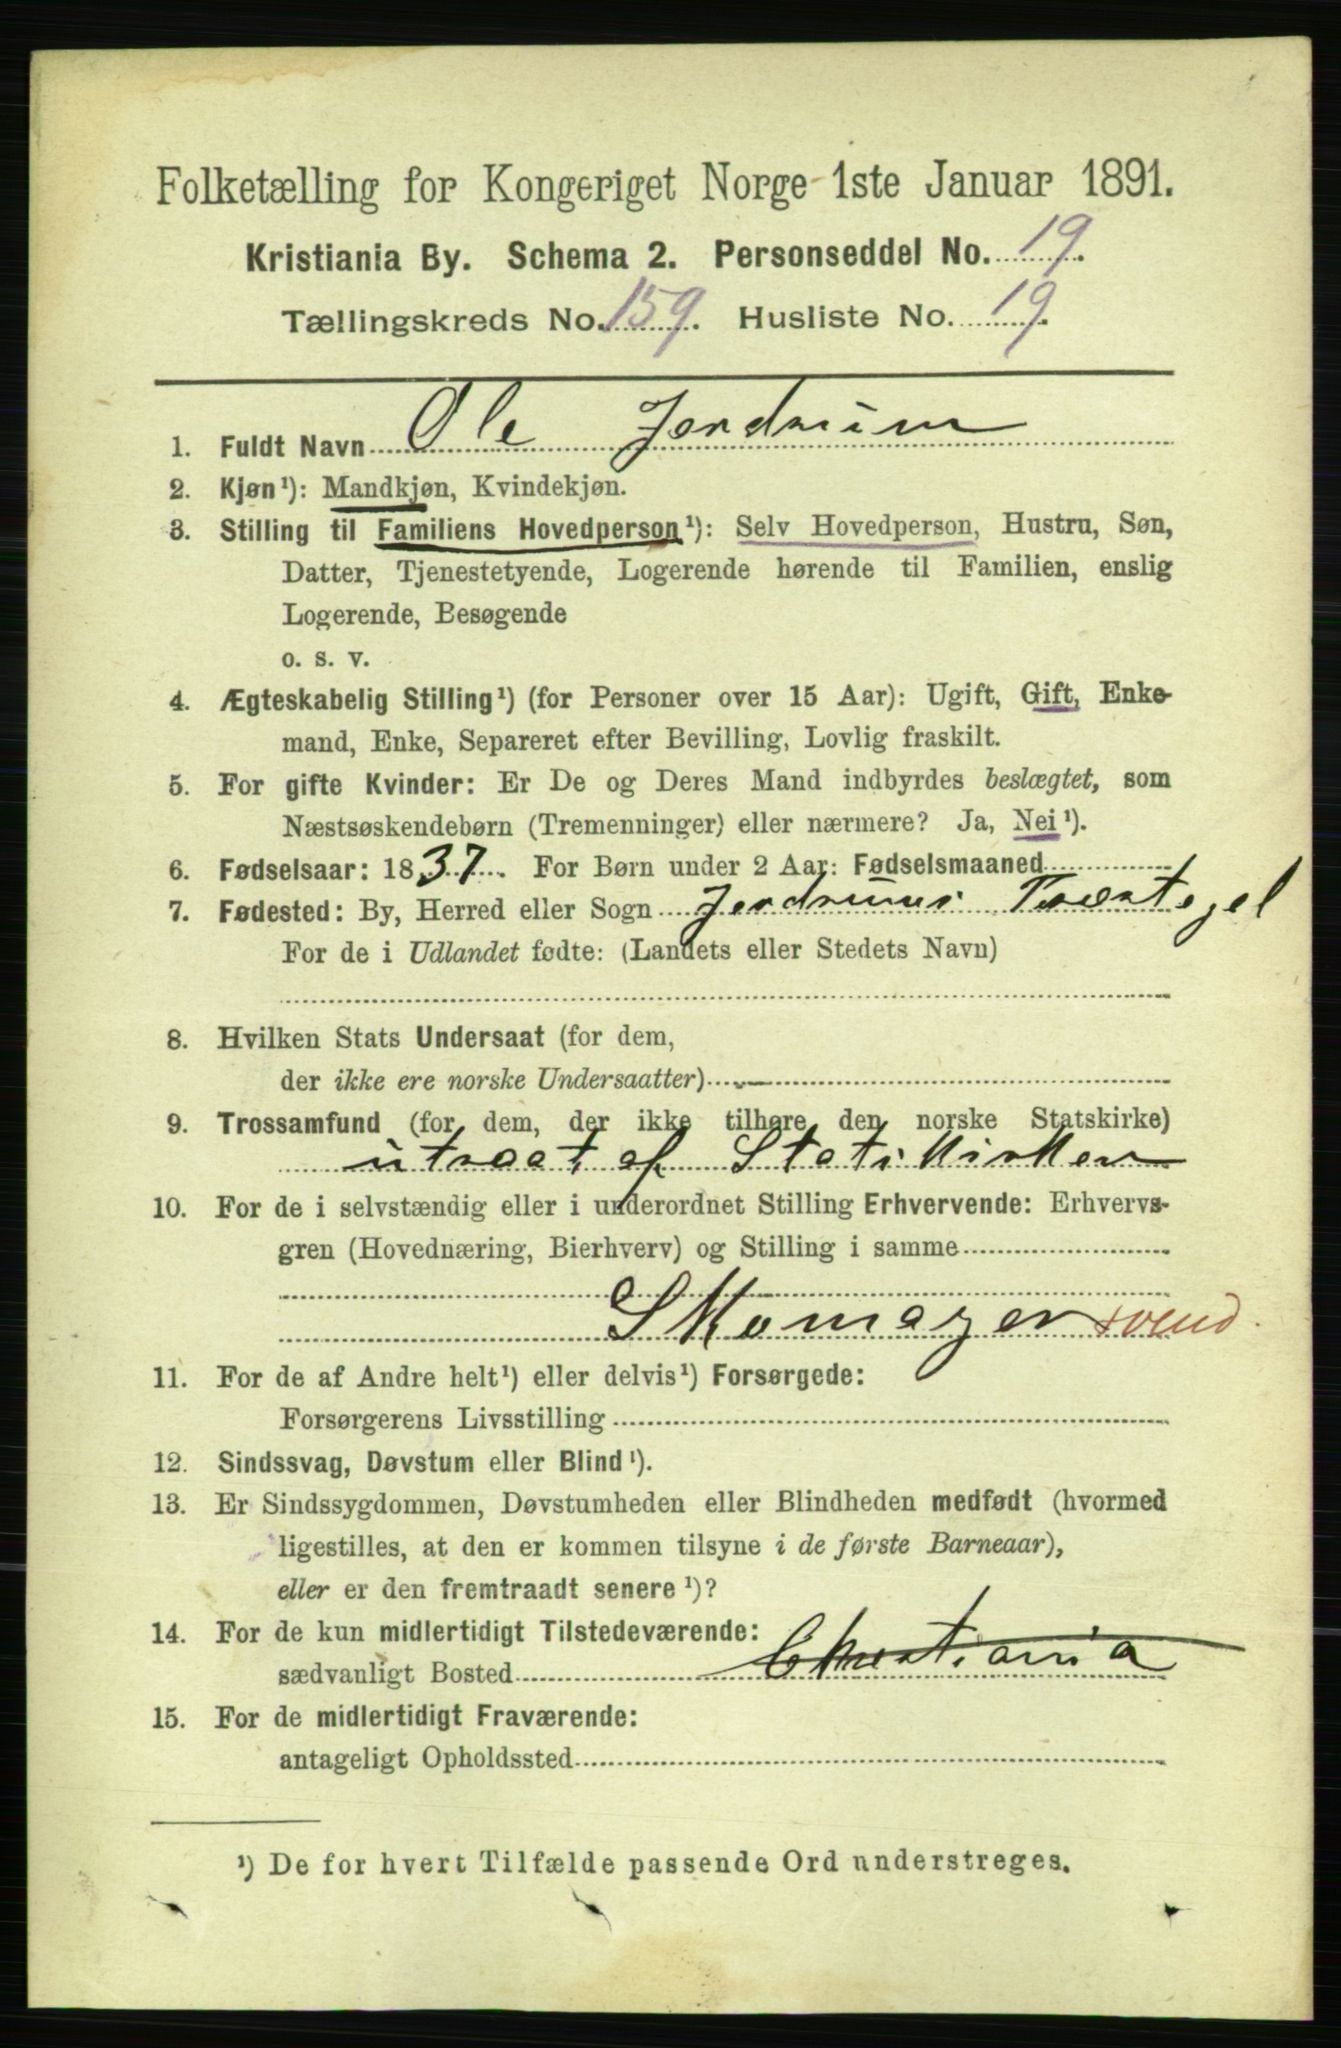 Folketælling for Kongeriget Norge 1ste Januar 1891.
Kristiania By. Schema 2. Personseddel No. 19.
Tællingskreds No. 159. Husliste No. 19.
1. Fuldt Navn Ole Jerdrum
2. Kjøn¹): Mandkjøn, Kvindekjøn.
3. Stilling til Familiens Hovedperson¹): Selv Hovedperson, Hustru, Søn,
Datter, Tjenestetyende, Logerende hørende til Familien, enslig
Logerende, Besøgende
o. s. v.
4. Ægteskabelig Stilling¹) (for Personer over 15 Aar): Ugift, Gift, Enke-
mand, Enke, Separeret efter Bevilling, Lovlig fraskilt.
5. For gifte Kvinder: Er De og Deres Mand indbyrdes beslægtet, som
Næstsøskendebørn (Tremenninger) eller nærmere? Ja, Nei¹).
6. Fødselsaar: 1837. For Børn under 2 Aar: Fødselsmaaned
7. Fødested: By, Herred eller Sogn Jerdrums Præstegel
For de i Udlandet fødte: (Landets eller Stedets Navn)
8. Hvilken Stats Undersaat (for dem,
der ikke ere norske Undersaatter)
9. Trossamfund (for dem, der ikke tilhøre den norske Statskirke)
utraat af Statskirken
10. For de i selvstændig eller i underordnet Stilling Erhvervende: Erhvervs-
gren (Hovednæring, Bierhverv) og Stilling i samme
Skomager svend.
11. For de af Andre helt¹) eller delvis¹) Forsørgede:
Forsørgerens Livsstilling
12. Sindssvag, Døvstum eller Blind¹).
13. Er Sindssygdommen, Døvstumheden eller Blindheden medfødt (hvormed
ligestilles, at den er kommen tilsyne i de første Barneaar),
eller er den fremtraadt senere¹)?
14. For de kun midlertidigt Tilstedeværende:
sædvanligt Bosted Christiania
15. For de midlertidigt Fraværende:
antageligt Opholdssted
¹) De for hvert Tilfælde passende Ord understreges.